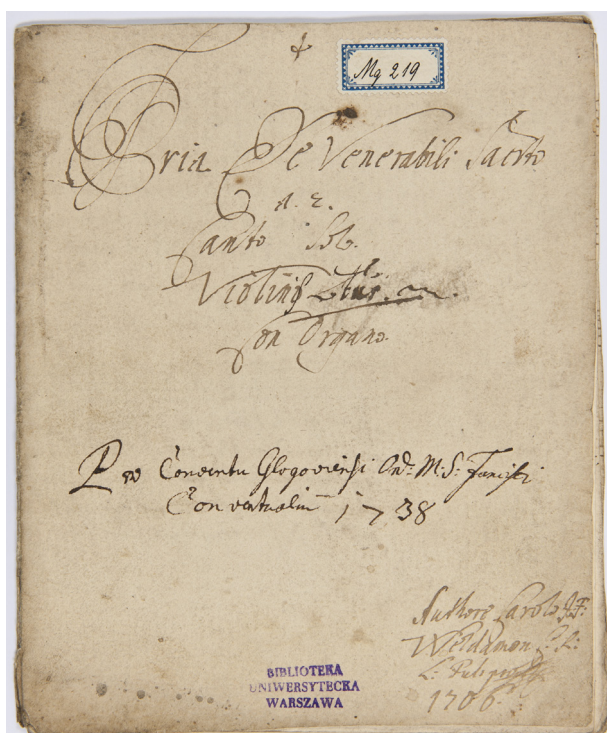 Mq 219
Aria De Venerabili Sacrto
a. 2.
Canto Solo.
Violinis
Con Organo.
Pro Conventu Glogoviensi Ord: M: S: Francisci
Conventualium 1738
Authore Carolo
Weldamon
1706.
BIBLIOTEKA
UNIWERSYTECKA
WARSZAWA